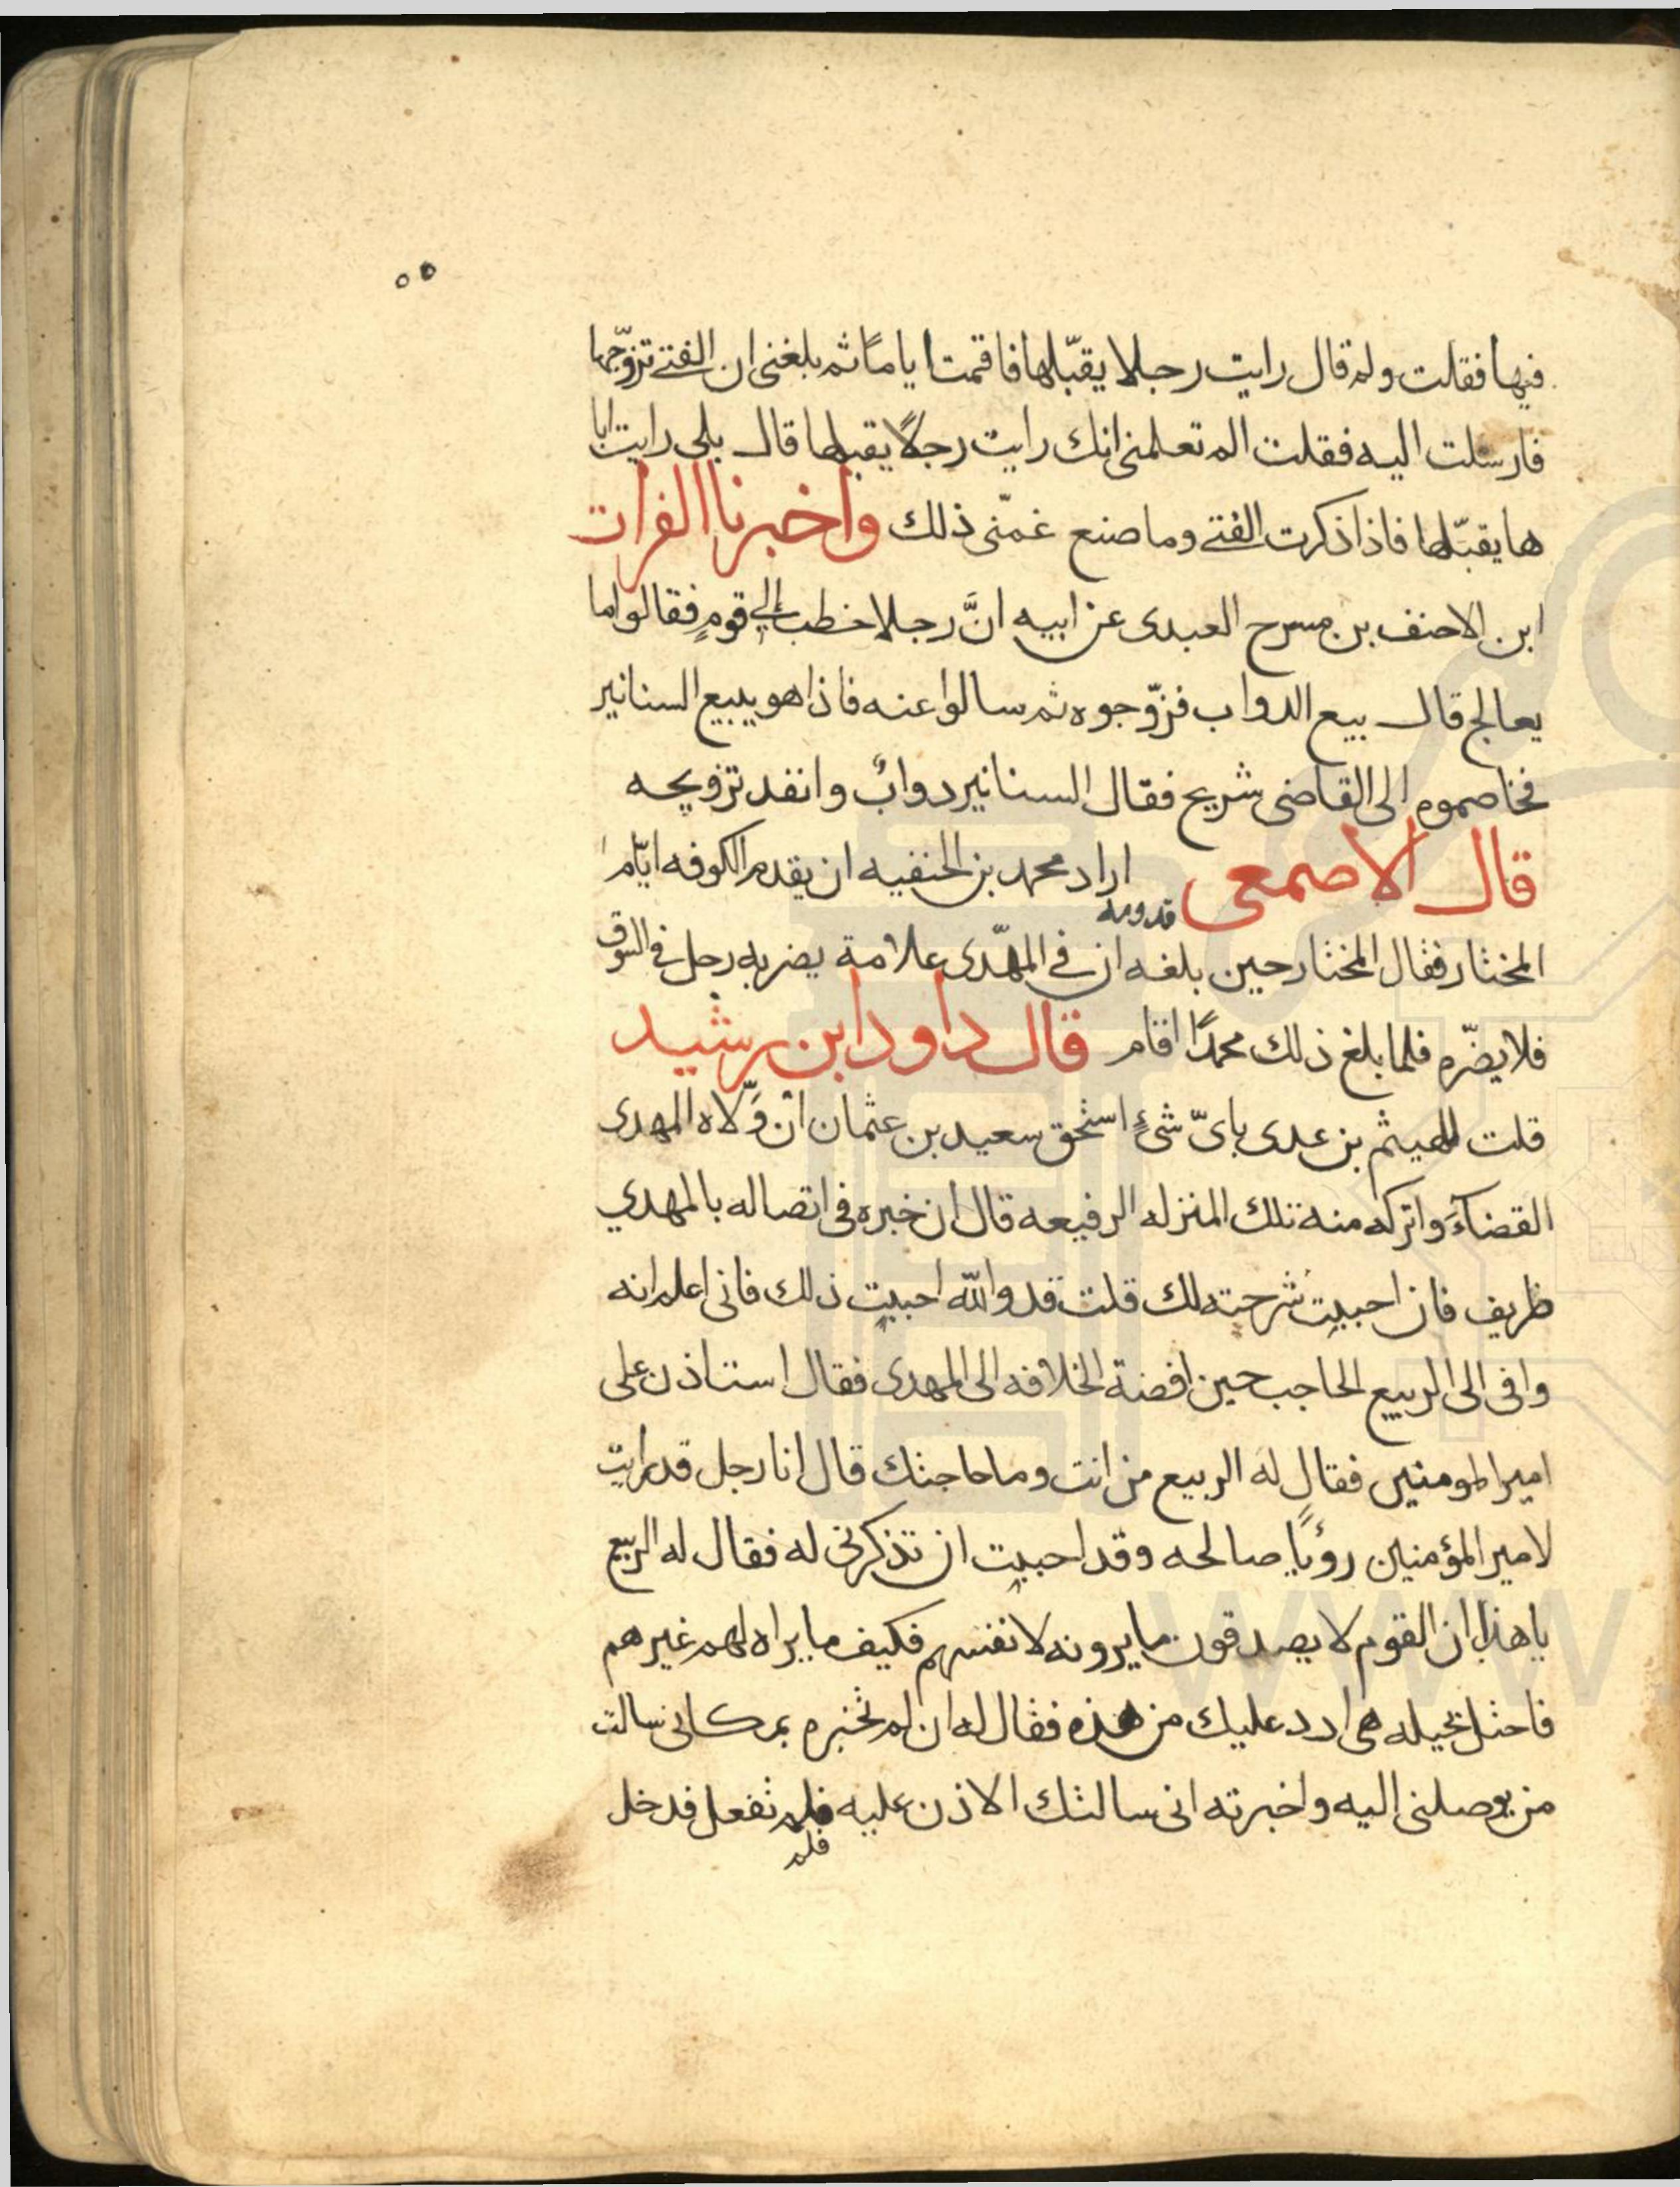 ٥٥
فيها فقلت ولم قال رايت رجلا يقبّلها فاقمت اياماً ثم بلغنى ان الفتى تزوّجها
فارسلت اليه فقلت الم تعلمنى انك رايت رجلاً يقبلها قال بلى رايت ابا
ها يقبّلها فاذا ذكرت الفتى وما صنع غمّنى ذلك واخبرنا الفرات
ابن الاحنف بن مسرح العبدى عن ابيه انَّ رجلا خطب الي قومٍ فقالوا ما
يعالج قال بيع الدواب فزوّجوه ثم سالوا عنه فاذا هو يبيع السنانير
فخاصموه الى القاضى شريح فقال السنانير دوابٌ وانفد تزويجه
قال الاصمعى اراد محمد بن الحنفيه ان يقدم الكوفه ايّام
قدومه
المختار فقال المختار حين بلغه ان في المهّدى علامة يضربه رجل في السوق
فلا يضّره فلما بلغ ذلك محمدًا اقام قال داود ابن رشيد
قلت للهيثم بن عدى باىّ شئٍ استحق سعيد بن عثمان ان وَّلاه المهدى
القضآءَ واتركه منه تلك المنزله الرفيعه قال ان خبره فى اتصاله بالمهدي
ظريف فان احببت شرحته لك قلت قد والله احببت ذلك فانى اعلم انه
وافى الى الربيع الحاجب حين افضة الخلافه الى المهدى فقال استاذن على
امير المومنين فقال له الربيع من انت وما حاجتك قال انا رجل قد رايت
لامير المؤمنين رؤياً صالحه وقد احببت ان تذكرنى له فقال له الربيع
يا هذا ان القوم لا يصدقون ما يرونه لانفسهم فكيف ما يراه لهم غيرهم
فاحتل بحيله هى ارد عليك من هذه فقال له ان لم تخبره بمكانى سالت
من يوصلنى اليه واخبرته انى سالتك الاذن عليه فلم تفعل فدخل
فلم